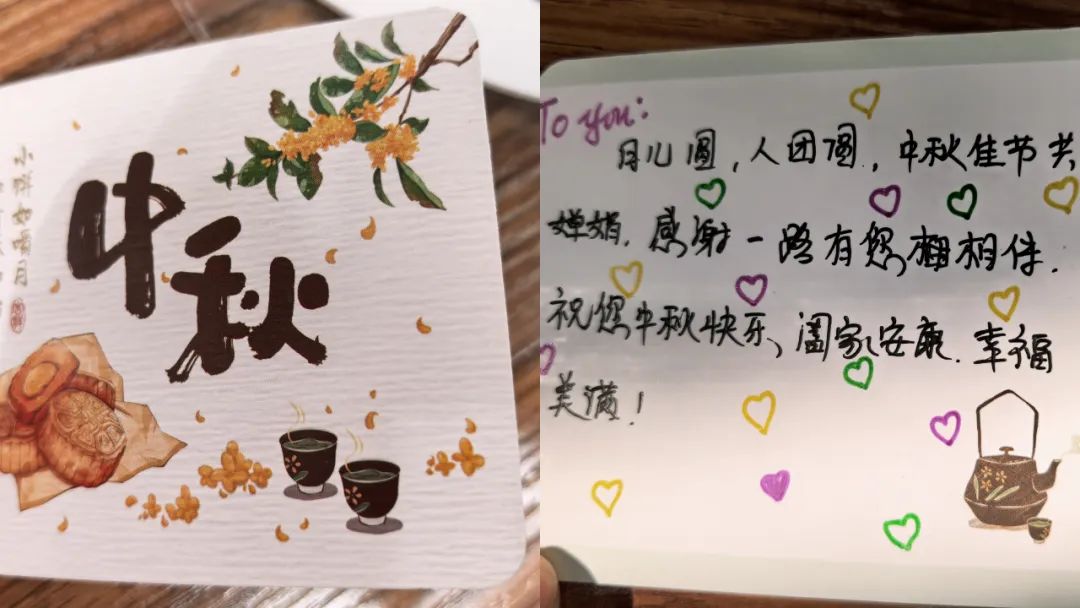 中秋
小饼如嚼月
To you:
月儿圆,人团圆,中秋佳节共
婵娟.感谢一路有您相相伴.
祝您中秋快乐,阖家安康.幸福
美满!